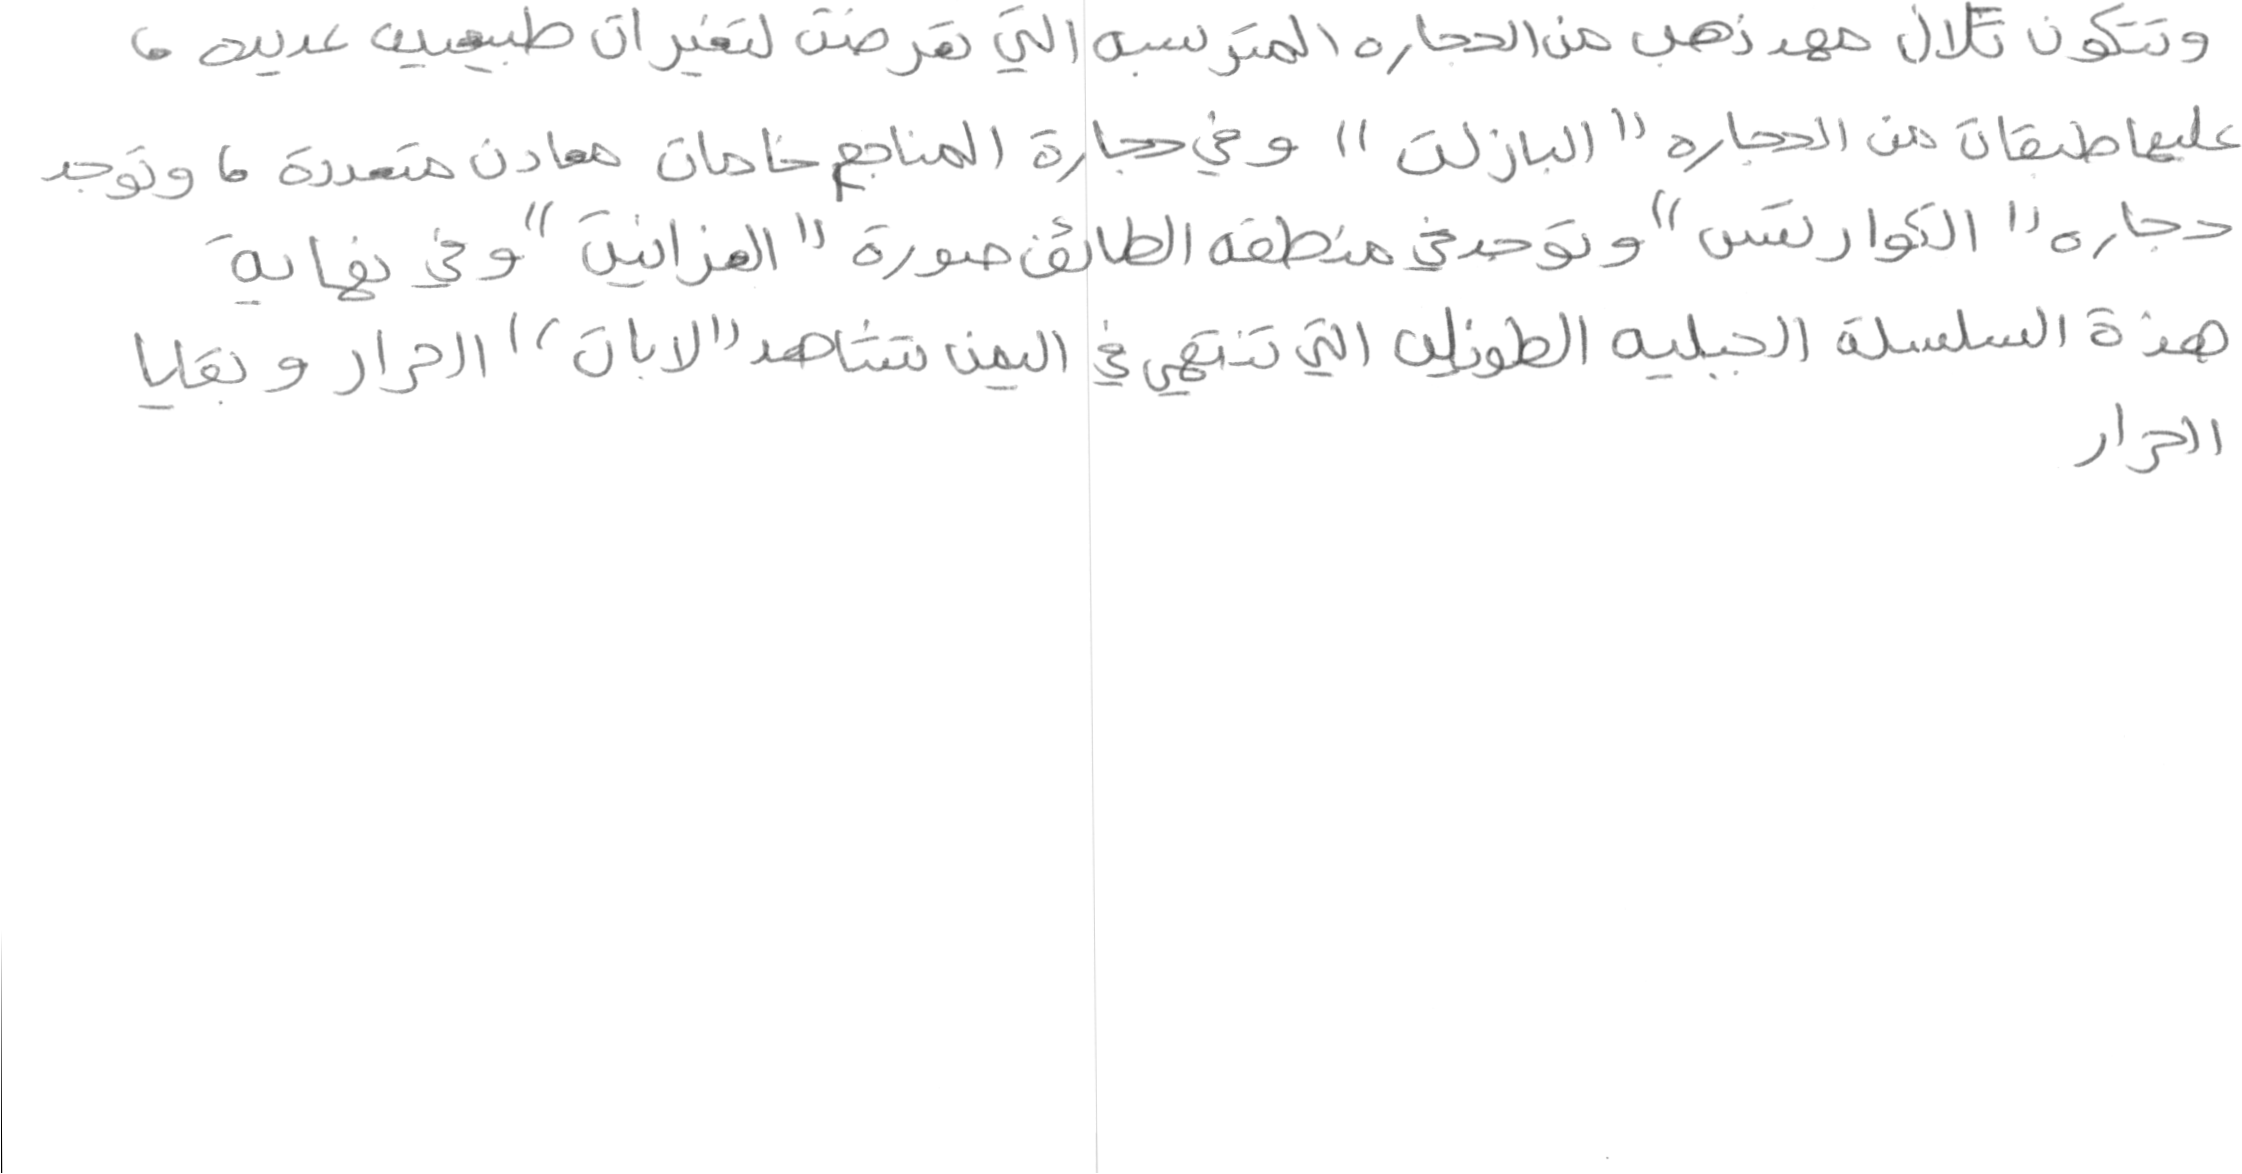 وتتكون تلال مهد ذهب من الحجاره المترسبه التي تعرضت لتغيرات طبيعيه عديده ،
عليها طبقات من الحجاره " البازلت " وفي حجارة المناجم خامات معادن متعددة ، وتوجد
حجاره " الكوارتس " وتوجد في منطقه الطائف صورة " الغرانيت " وفي نهاية
هذة السلسلة الجبليه الطويله التي تنتهي في اليمن تشاهد " لابات " الحرار وبقايا
الحرار